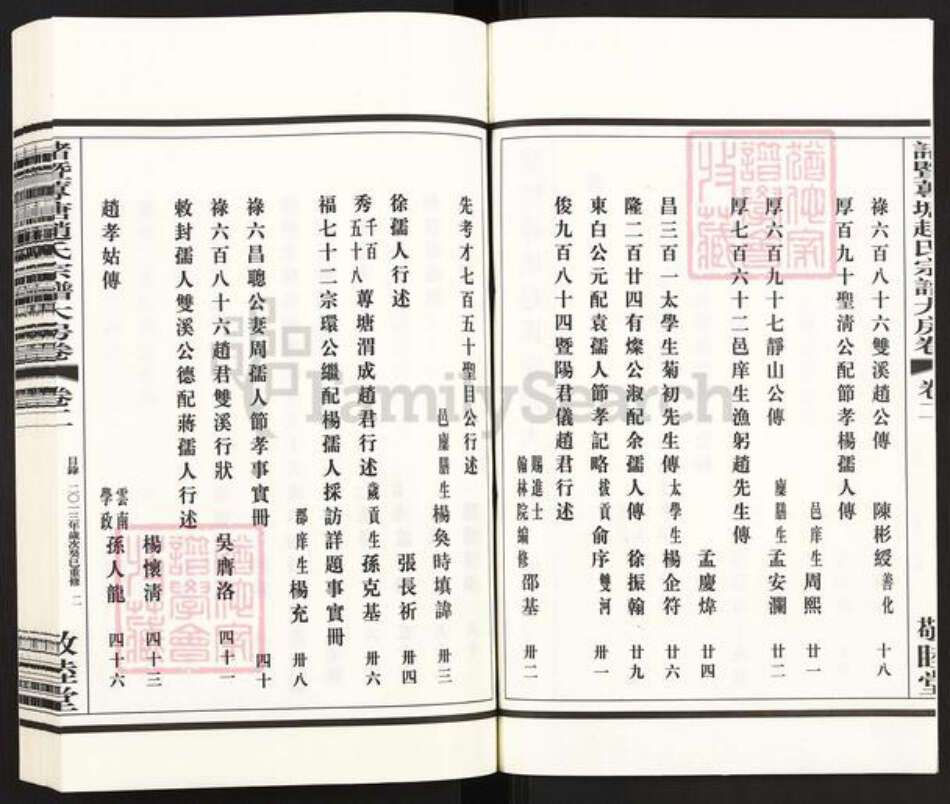 諸暨蓴塘趙氏宗譜大房卷 卷二
敬睦堂
祿六百八十六雙溪趙公傳 陳彬綬善化 十八
厚百九十聖淸公配節孝楊孺人傳
邑庠生周熙 廿一
厚六百九十七靜山公傳 廩膳生孟安瀾 廿二
厚七百六十二邑庠生漁躬趙先生傳
孟慶煒 廿四
昌三百一太學生菊初先生傳 太學生楊企符 廿六
隆二百廿四有燦公淑配余孺人傳 徐振翰 廿九
東白公元配袁孺人節孝記略 拔貢俞序雙河 卅一
俊九百八十四暨陽君儀趙君行述
賜進士翰林院編修邵基 卅二
先考才七百五十聖目公行述
邑廩膳生楊奐時填諱 卅三
徐孺人行述 張長祈 卅四
秀千百五十八蓴塘渭成趙君行述 歲貢生孫克基 卅六
福七十二宗環公繼配楊孺人採訪詳題事實冊
郡庠生楊充 卅八
祿六昌聰公妻周孺人節孝事實冊 四十
祿六百八十六趙君雙溪行狀 吳膺洛 四十一
敕封孺人雙溪公德配蔣孺人行述
楊懷清 四十三
趙孝姑傳 雲南學政孫人龍 四十六
諸暨蓴塘趙氏宗譜大房卷 卷二
目錄 二〇一三年歲次癸巳重修 二
敬睦堂
FamilySearch